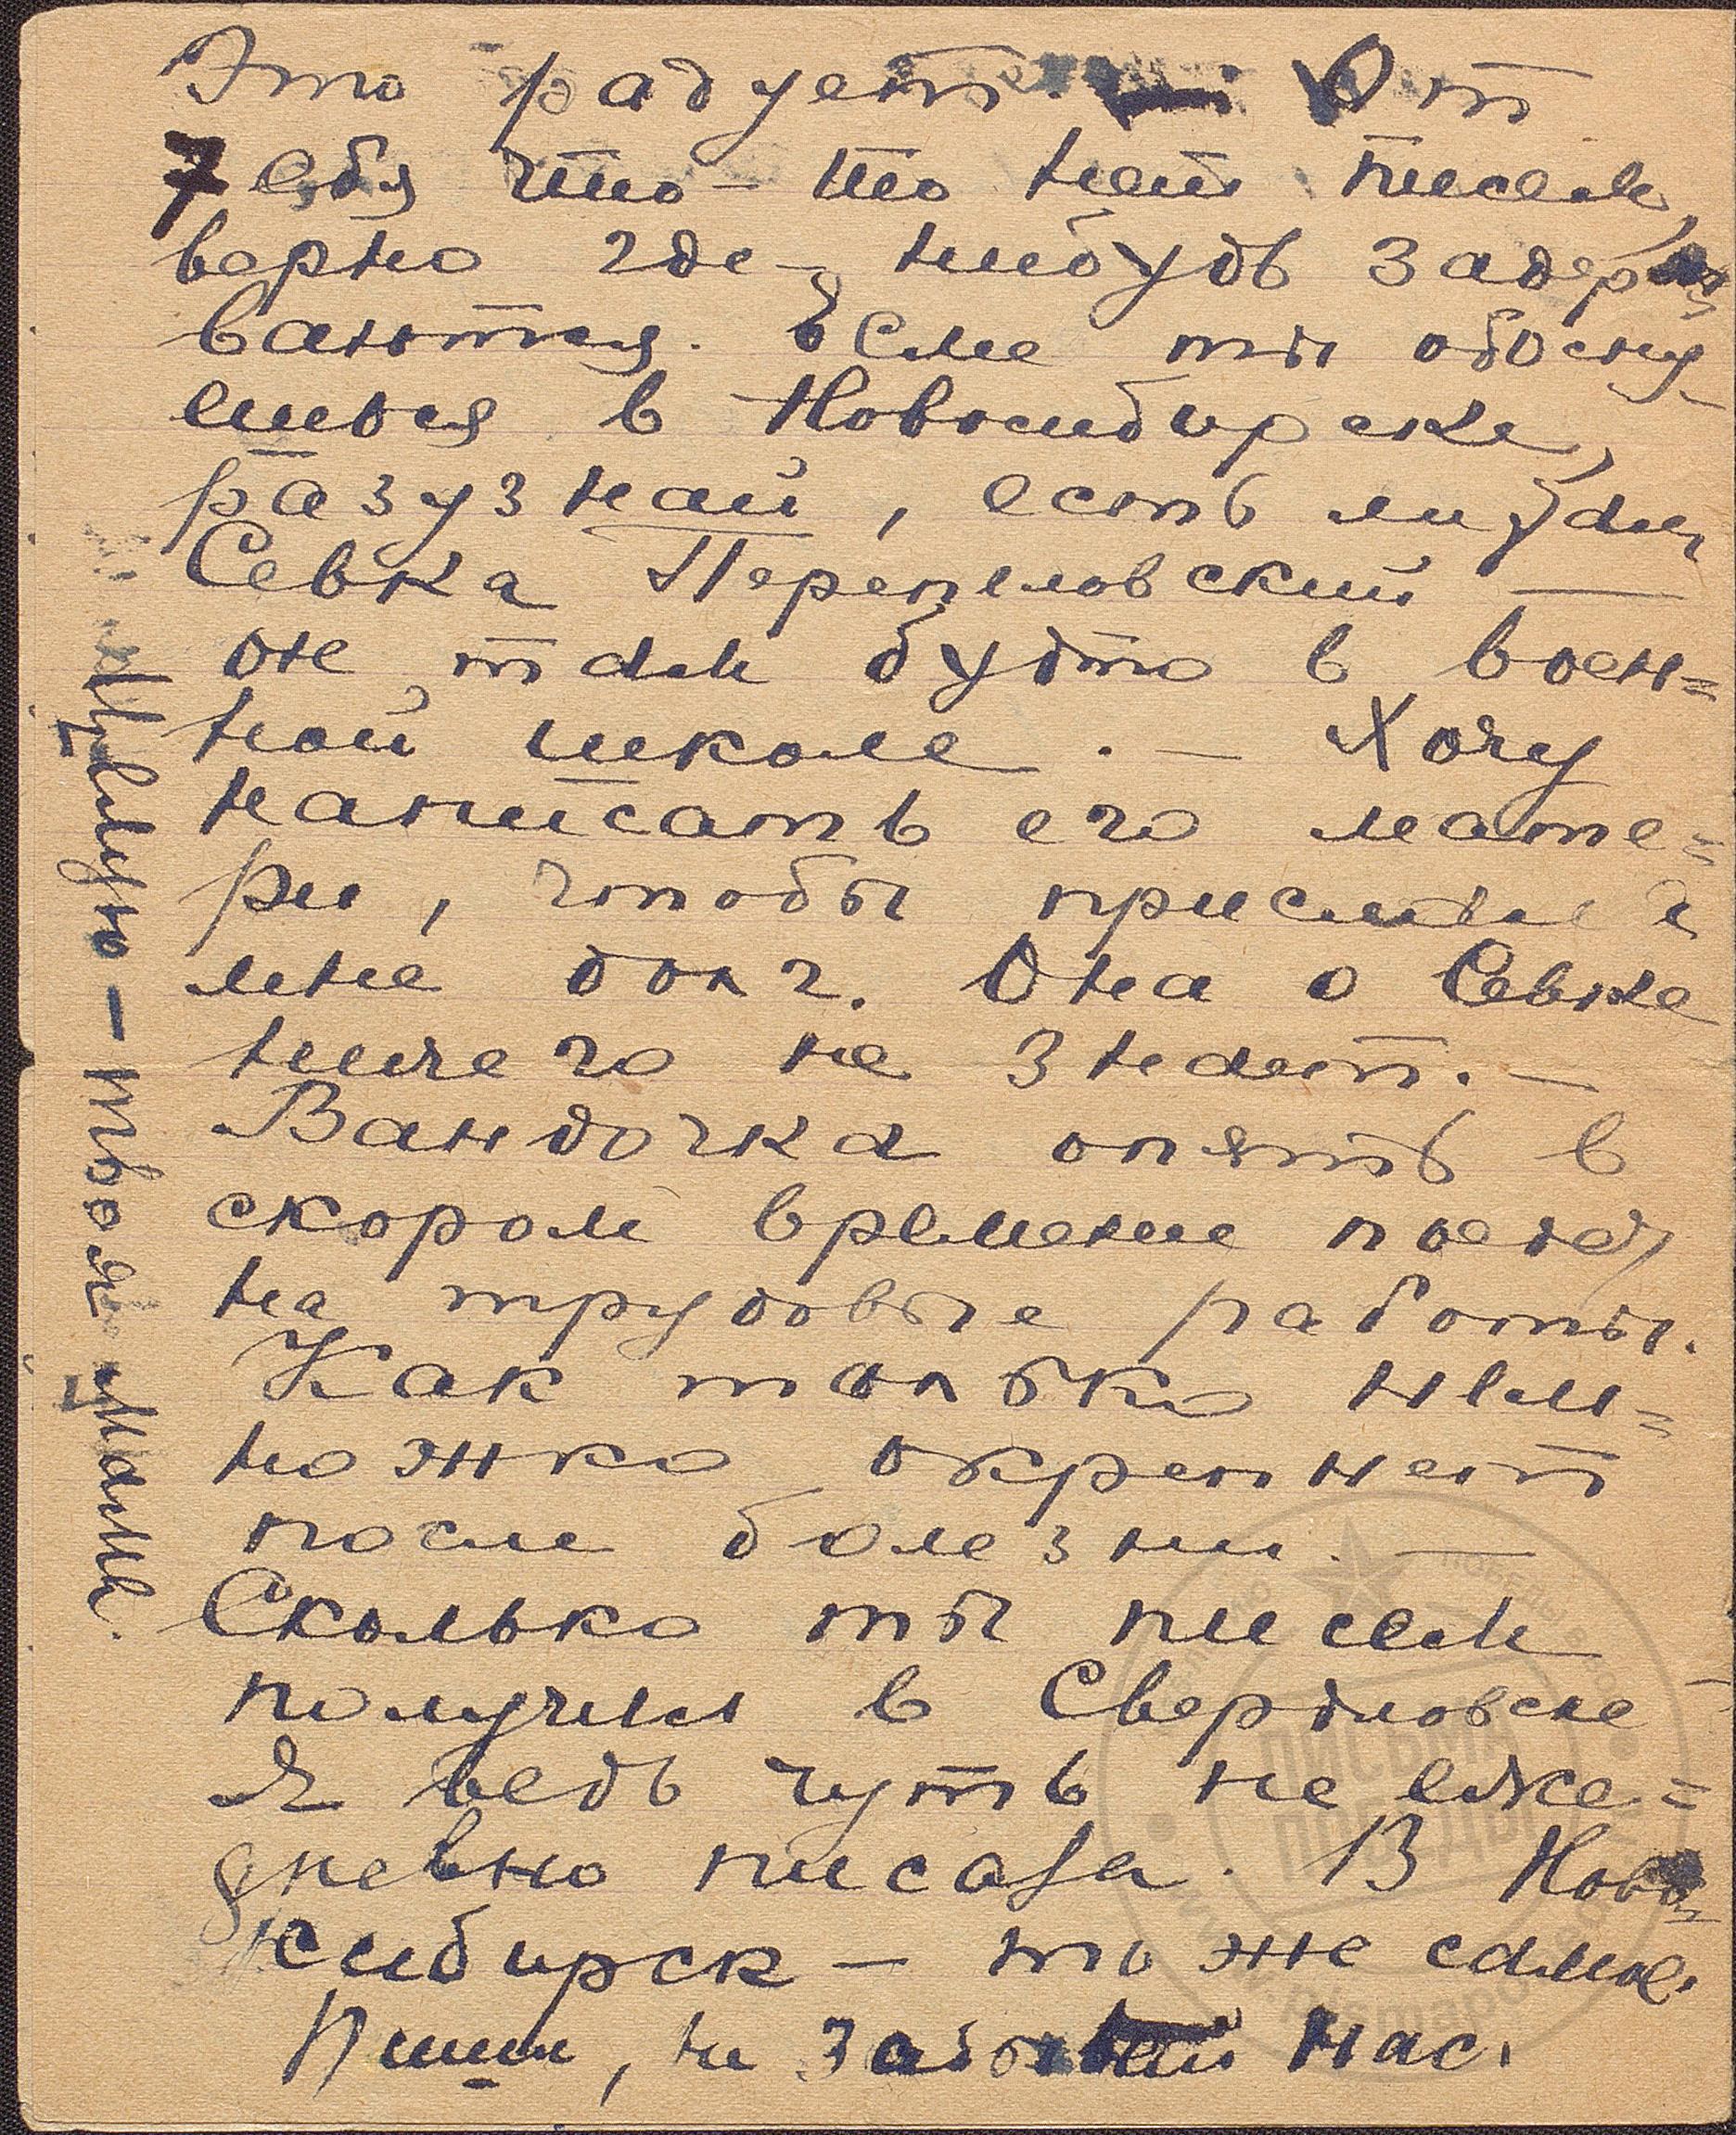 Это радует. — От
тебя что-то нет писем,
верно где-нибудь задержи
ваются. Если ты обосну
ешься в Новосибирске,
разузнай, есть ли там
Севка Перепеловский —
он там будто в воен=
ной школе. — Хочу
написать его мате=
ри, чтобы прислала
мне долг. Она о Севке
ничего не знает. —
Вандочка опять в
скором времени поедет
на трудовые работы.
Как только нем=
ножко окрепнет
после болезни. —
Сколько ты писем
получил в Свердловске
Я ведь чуть не еже=
дневно писала. В Ново
сибирск — то же самое.
Пиши, не забывай нас.
Целую — твоя мама.
ПИСЬМА
ПОБЕДЫ